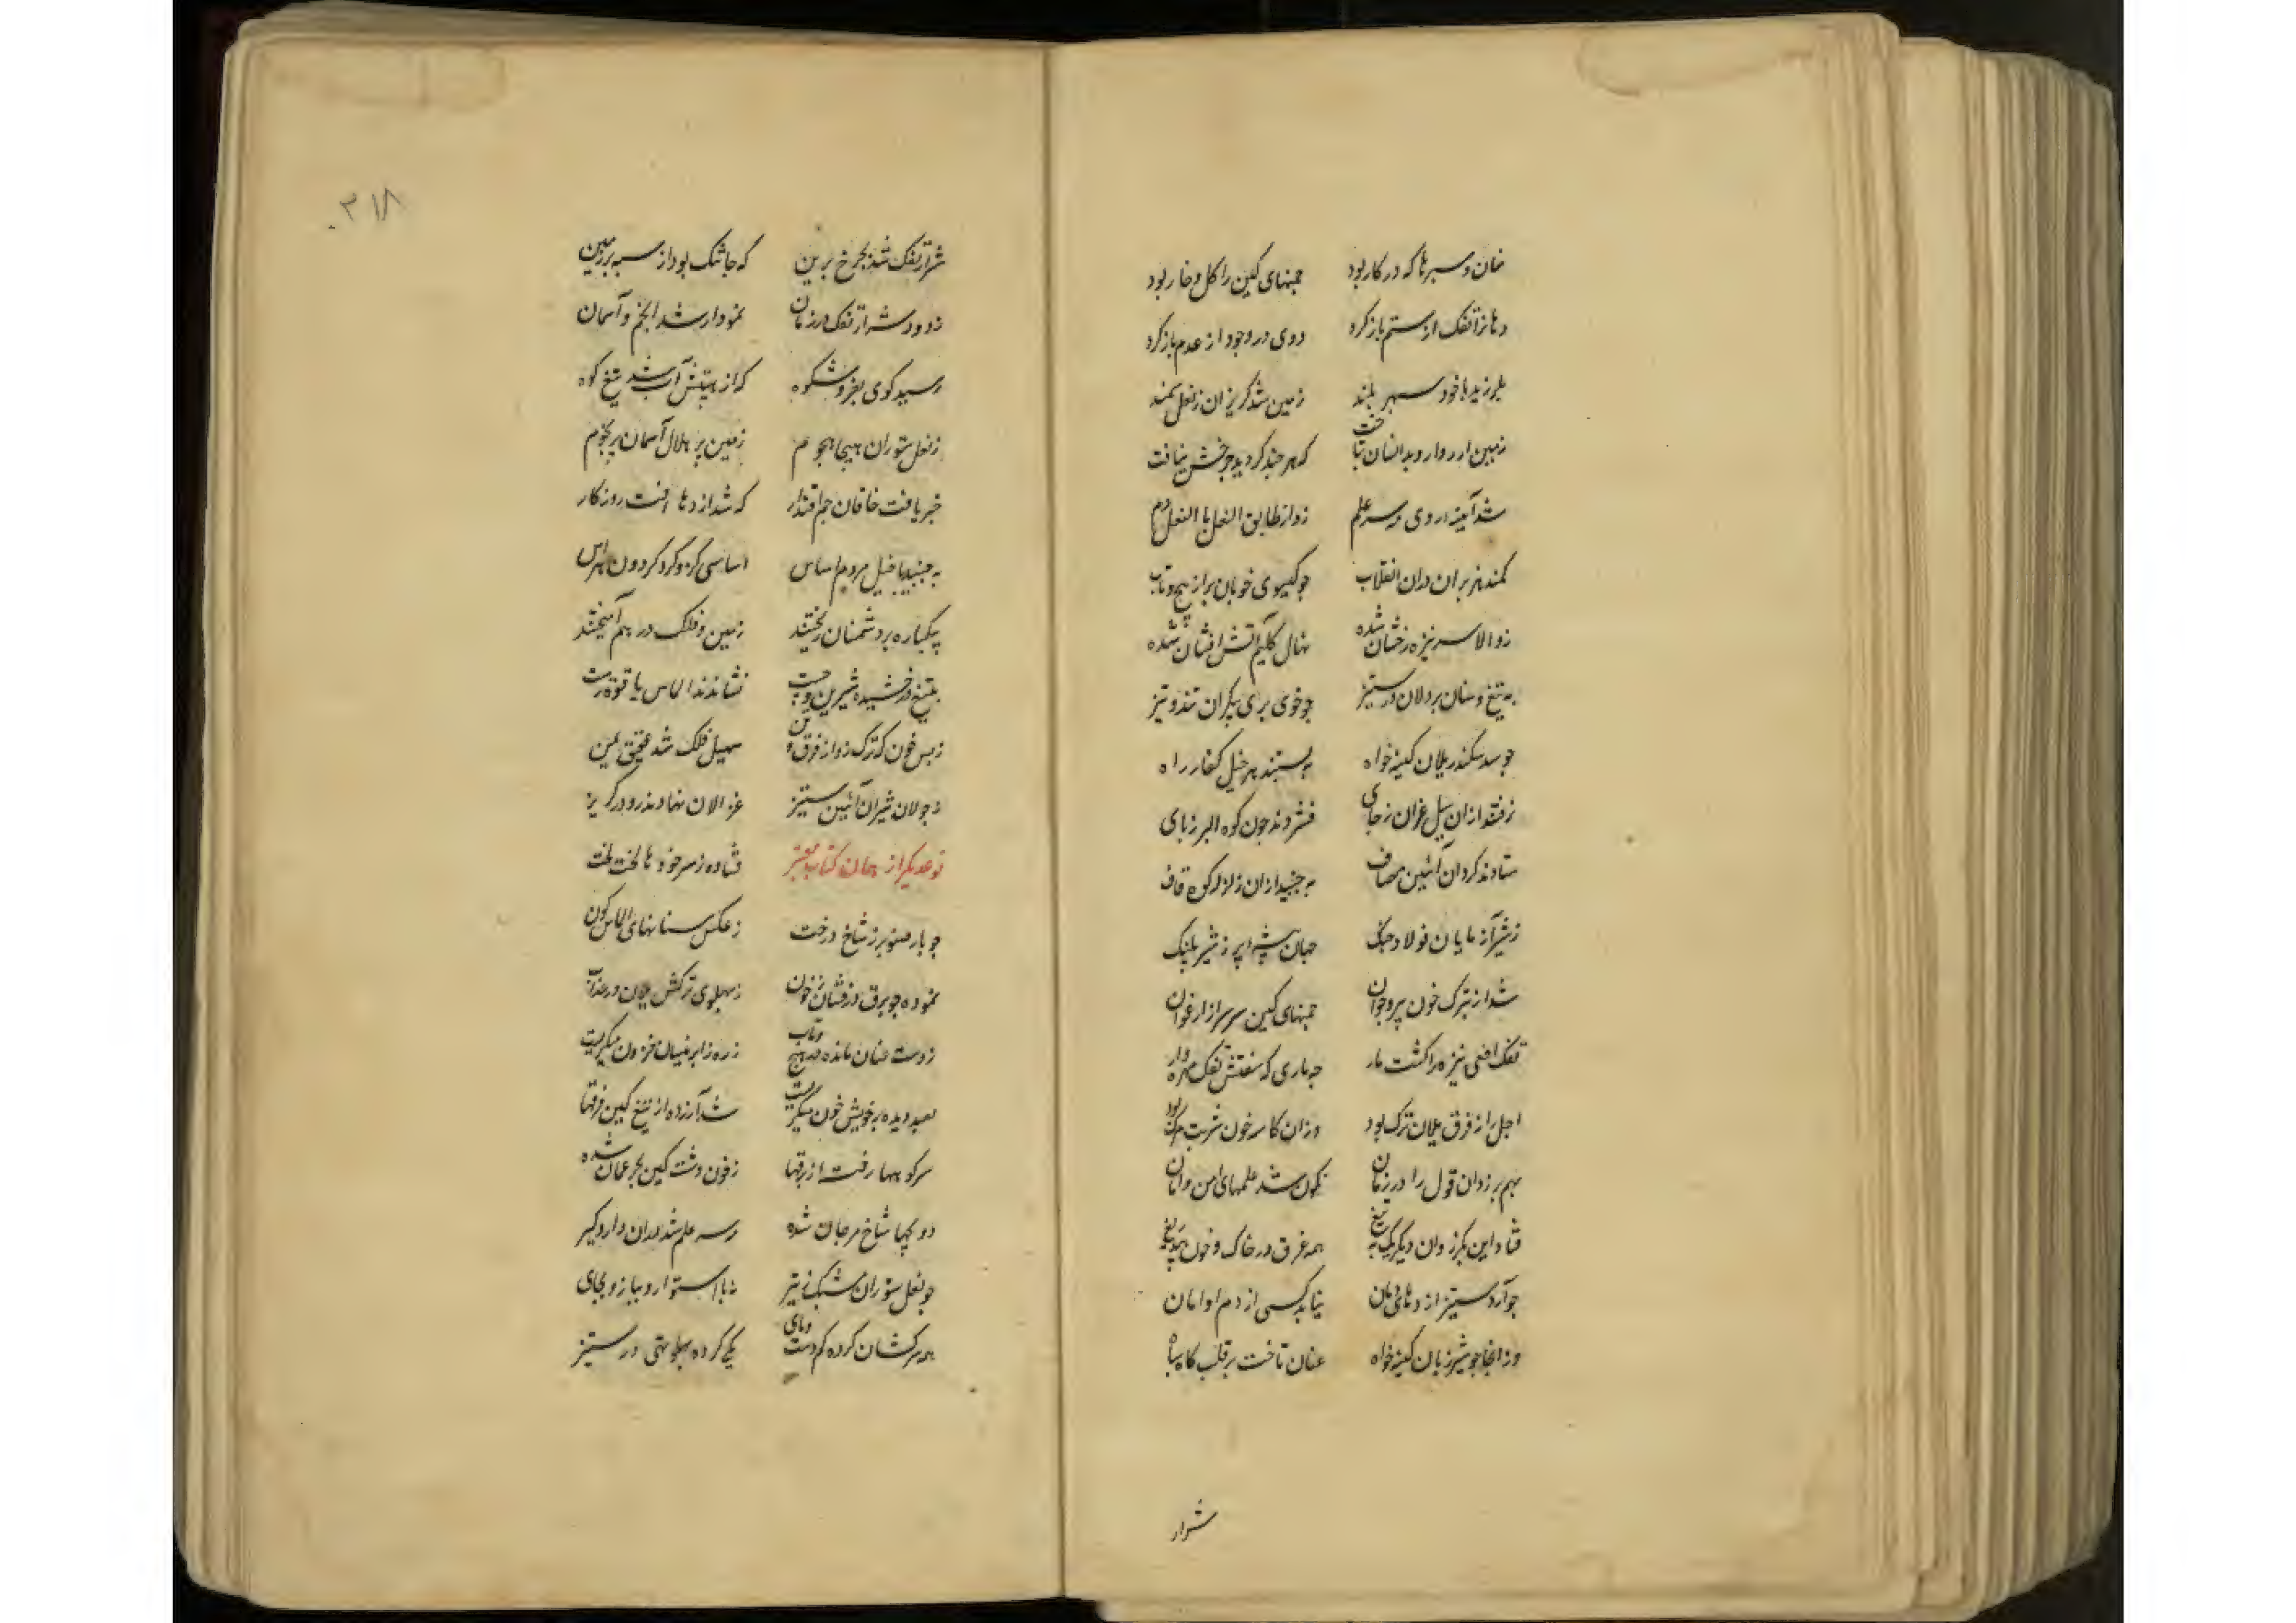 سنان و سپرها که در کار بود چمنهای کین را گل و خار بود
دهانرا تفک از ستم باز کرد دری در وجود از عدم باز کرد
بلرزید بر خود سپهر بلند زمین شد گریزان ز نعل سمند
که هر چند گردید چرخش نیافت
شد آیینه روی مه سر علم زد از طابق النعل بالنعل دم
کمند هژبران دران انقلاب چو گیسوی خوبان پر از پیچ و تاب
ز والا سر نیزه رخشان شده نهال کلیم آتش افشان شده
به تیغ و سنان پردلان در ستیز چو خوی پری پیکران تند و تیز
چو سد سکندر یلان کینه خواه ببستند بر خیل کفار راه
نرفتند ازان سیل غران ز جای فشردند چون کوه البرز پای
ستادند گردان آئین مصاف نجنبید ازان زلزله کوه قاف
ز شیر آزمایان فولاد چنگ جهان بیشه پر ز شیر و پلنگ
شد از ترک خون پیر و جوان چمنهای کین سربسر ارغوان
تفک افعی نیزه را گشت مار چه ماری که سفتش تفک مهره وار
اجل را ز فرق یلان ترک بود دران کاسه خون شربت مرگ بود
بهم برزد آن قول را در زمان نگون شد علمهای امن و امان
فتاد این بگرز و آن دیگر به تیغ همه غرق در خاک و خون بیدریغ
چو آرد ستیز اژدهای دمان نیابد کسی از دم او امان
وز آنجا چو شیر ژیان کینه خواه عنان تافت بر قلب گاه سپاه
شرار
۳۱۸
شرار تفک شد بچرخ برین که جا تنگ بود از سپه بر زمین
ز دود و شرار تفک در زمان نمودار شد انجم و آسمان
رسید کوی بفر و شکوه که از هیبتش آب شد تیغ کوه
ز نعل ستوران هیجا هجوم زمین پر هلال آسمان پر نجوم
خبر یافت خاقان جم اقتدار که شد اژدها افت روزگار
بجنبید با خیل مردم اساس اساسی کزو گرد گردون هراس
بیکباره بر دشمنان ریختند زمین و فلک در هم آمیختند
بتیغ درخشنده شیرین و چست نشاندند الماس یاقوت رست
ز بس خون که ترک زد از فرق سهیل فلک شد عقیق یمن
ز جولان شیران آئین ستیز غزالان نهادند رو در گریز
نوعدیگر از همان کتاب معتبر فتاده ز سر خودها لخت لخت
چو بار صنوبر ز شاخ درخت ز عکس سنانهای الماس گون
نموده چو برق درفشان ز خون ز پهلوی ترکش یلان در عذاب
ز دست عنان مانده در پیچ و تاب زره زابر نیسان فزون میگریست
بصد دیده بر خویش خون میگریست شد آزرده از تیغ کین فرقها
سر کوهها رفت از برقها ز خون دشت کین بحر عمان شده
دو پنجها شاخ مرجان شده سر علم شد دران دار و گیر
چو نعل ستوران مشبک ز تیر نه پا استوار و نه بازو بجای
همه سرکشان کرده گم دست و پای یکی کرده پهلو تهی در ستیز